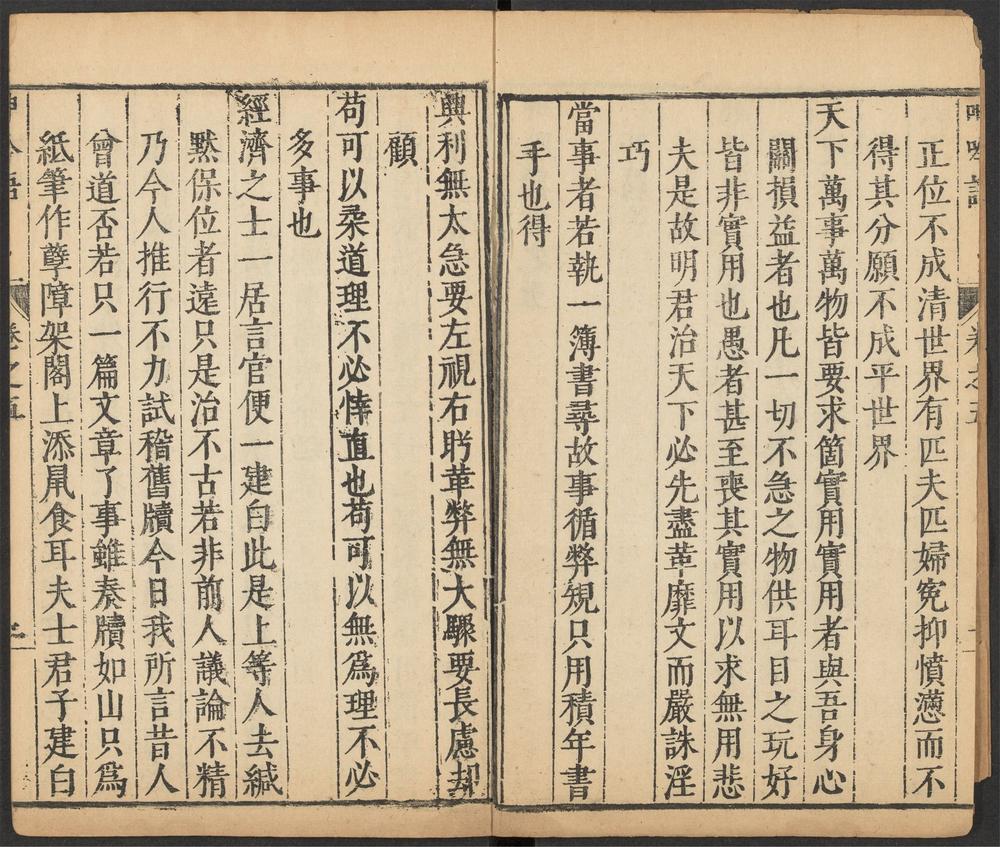 正位不成清世界有匹夫匹婦冤抑憤懣而不
得其分願不成平世界
天下萬事萬物皆要求箇實用實用者與吾身心
關損益者也凡一切不急之物供耳目之玩好
皆非實用也愚者甚至喪其實用以求無用悲
夫是故明君治天下必先盡革靡文而嚴誅淫
巧
當事者若執一簿書尋故事循弊規只用積年書
手也得
興利無太急要左視右盻革弊無大驟要長慮却
顧
苟可以柔道理不必悻直也苟可以無爲理不必
多事也
經濟之士一居言官便一建白此是上等人去緘
默保位者遠只是治不古若非前人議論不精
乃今人推行不力試稽舊牘今日我所言昔人
曾道否若只一篇文章了事雖奏牘如山只爲
紙筆作孽障架閣上添鼠食耳夫士君子建白
卷之五